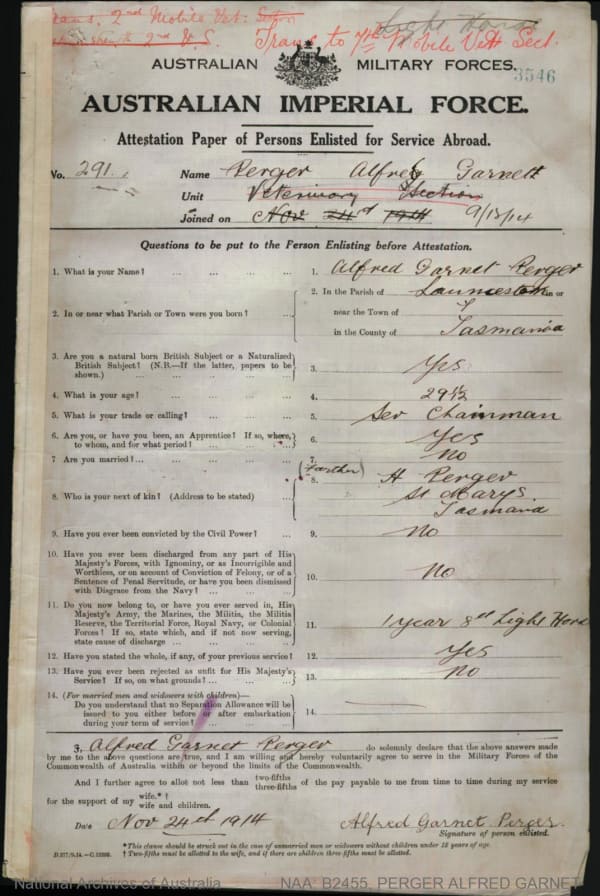 Trans. 2nd Mobile Vet: Section
2nd V.S.
Light Horse
Trans to 7th Mobile Vet Sect.
AUSTRALIAN MILITARY FORCES.
3546
AUSTRALIAN IMPERIAL FORCE.
Attestation Paper of Persons Enlisted for Service Abroad.
No. 291. Name Perger Alfred Garnett
Unit Veterinary Section
Joined on Nov 24th 1914 9/13/14
Questions to be put to the Person Enlisting before Attestation.
1. What is your Name? ... ... ... ... 1. Alfred Garnet Perger
2. In or near what Parish or Town were you born? ... 2. In the Parish of Launceston in or
near the Town of
in the County of Tasmania
3. Are you a natural born British Subject or a Naturalized
British Subject? (N.B.—If the latter, papers to be
shown.) ... ... ... ... ... 3. Yes
4. What is your age? ... ... ... ... 4. 29 1/2
5. What is your trade or calling? ... ... ... 5. Sev Chainman
6. Are you, or have you been, an Apprentice? If so, where,
to whom, and for what period? ... ... ... 6. Yes
7 Are you married?... ... ... ... ... 7. No
8. Who is your next of kin? (Address to be stated) ... (Farther) 8. H Perger
St Marys.
Tasmania
9. Have you ever been convicted by the Civil Power? ... 9. No
10. Have you ever been discharged from any part of His
Majesty's Forces, with Ignominy, or as Incorrigible and
Worthless, or on account of Conviction of Felony, or of a
Sentence of Penal Servitude, or have you been dismissed
with Disgrace from the Navy? ... ... ... 10. No
11. Do you now belong to, or have you ever served in, His
Majesty's Army, the Marines, the Militia, the Militia
Reserve, the Territorial Force, Royal Navy, or Colonial
Forces? If so, state which, and if not now serving,
state cause of discharge ... ... ... ... 11. 1 year 8th Light Horse
12. Have you stated the whole, if any, of your previous service? 12. Yes
13. Have you ever been rejected as unfit for His Majesty's
Service? If so, on what grounds? ... ... ... 13. No
14. (For married men and widowers with children)—
Do you understand that no Separation Allowance will be
issued to you either before or after embarkation
during your term of service? ... ... ... 14.
I, Alfred Garnet Perger do solemnly declare that the above answers made
by me to the above questions are true, and I am willing and hereby voluntarily agree to serve in the Military Forces of the
Commonwealth of Australia within or beyond the limits of the Commonwealth.
And I further agree to allot not less than two-fifths three-fifths of the pay payable to me from time to time during my service
for the support of my wife.*† wife and children.
Date Nov 24th 1914 Alfred Garnet Perger
Signature of person enlisted.
*This clause should be struck out in the case of unmarried men or widowers without children under 18 years of age.
† Two-fifths must be allotted to the wife, and if there are children three-fifths must be allotted.
National Archives of Australia NAA: B2455, PERGER ALFRED GARNET